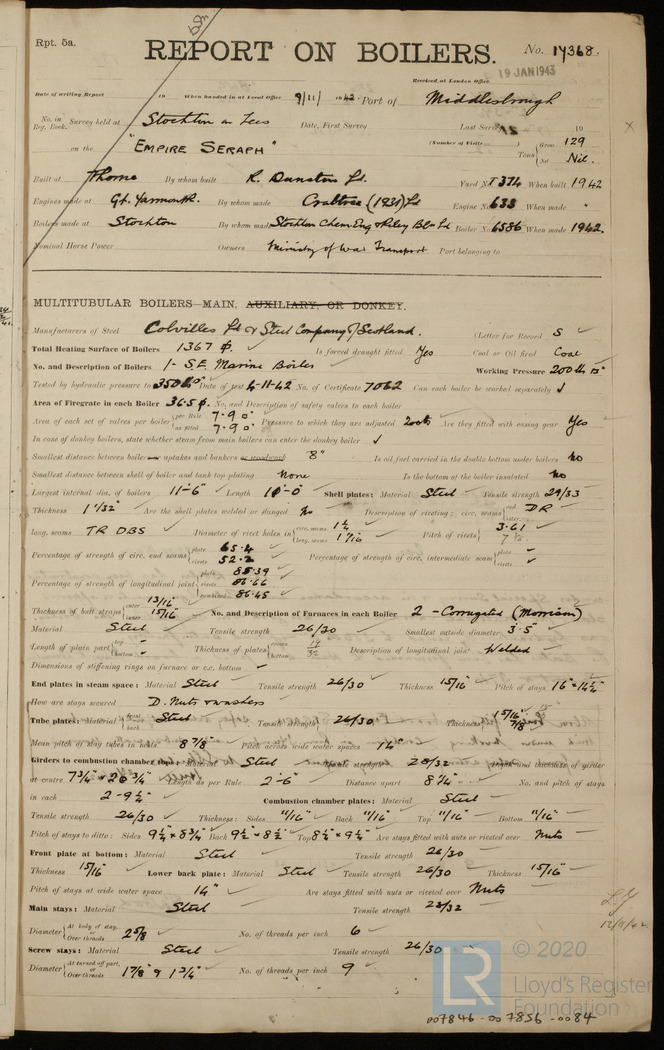 Rpt. 5a.
REPORT ON BOILERS.
No. 17368.
19 JAN 1943
Received at London Office
Date of writing Report 19 When handed in at Local Office 9/11/1942 Port of Middlesbrough
No. in Reg. Book. Survey held at Stockton on Tees Date, First Survey Last Survey 19
(Number of Visits) Gross 129
on the "EMPIRE SERAPH" Tons Net Nil.
Built at Thorne By whom built R. Dunston Ld. Yard No. T374 When built 1942
Engines made at Gt. Yarmouth. By whom made Crabtree (1931) Ld Engine No. 633 When made "
Boilers made at Stockton By whom made Stockton Chem. Eng & Riley Blrs Ld Boiler No. 6586 When made 1942.
Nominal Horse Power Owners Ministry of War Transport Port belonging to
MULTITUBULAR BOILERS—MAIN, AUXILIARY, OR DONKEY.
Manufacturers of Steel Colvilles Ld & Steel Company of Scotland. (Letter for Record S
Total Heating Surface of Boilers 1367 ф. Is forced draught fitted Yes Coal or Oil fired Coal
No. and Description of Boilers 1- S.E. Marine Boiler Working Pressure 200 lb □"
Tested by hydraulic pressure to 350 lb □" Date of test 4-11-42 No. of Certificate 7062 Can each boiler be worked separately ✓
Area of Firegrate in each Boiler 36.5 ф. No. and Description of safety valves to each boiler
Area of each set of valves per boiler { per Rule 7.90 □" as fitted 7.90 □" Pressure to which they are adjusted 200 lb Are they fitted with easing gear Yes
In case of donkey boilers, state whether steam from main boilers can enter the donkey boiler ✓
Smallest distance between boiler or uptakes and bunkers or woodwork 8" Is oil fuel carried in the double bottom under boilers No
Smallest distance between shell of boiler and tank top plating None Is the bottom of the boiler insulated No
Largest internal dia. of boilers 11'-6" Length 10'-0" Shell plates: Material Steel Tensile strength 29/33
Thickness 1 1/32" Are the shell plates welded or flanged No Description of riveting: circ. seams { end DR inter.
long. seams TR DBS Diameter of rivet holes in { circ. seams 1 1/4 long. seams 1 1/16 Pitch of rivets { 3.61 7 1/2
Percentage of strength of circ. end seams { plate 65.4 rivets 52.2 Percentage of strength of circ. intermediate seam { plate rivets
Percentage of strength of longitudinal joint { plate 85.39 rivets 86.66 combined 86.45
Thickness of butt straps { outer 13/16 inner 15/16 No. and Description of Furnaces in each Boiler 2 - Corrugated (Morrison)
Material Steel Tensile strength 26/30 Smallest outside diameter 3'.5"
Length of plain part { top bottom Thickness of plates { crown bottom 17/32 Description of longitudinal joint Welded
Dimensions of stiffening rings on furnace or c.c. bottom ✓
End plates in steam space: Material Steel Tensile strength 26/30 Thickness 15/16" Pitch of stays 16" × 14 1/2"
How are stays secured D. Nuts & washers
Tube plates: Material { front back Steel Tensile strength 26/30 Thickness { 15/16" 7/8"
Mean pitch of stay tubes in nests 8 7/8" Pitch across wide water spaces 14"
Girders to combustion chamber tops: Material Steel Tensile strength 28/32 Depth and thickness of girder
at centre 7 3/4" × 2@ 3/4" Length as per Rule 2'-6" Distance apart 8 1/4" No. and pitch of stays
in each 2 - 9 1/2" Combustion chamber plates: Material Steel
Tensile strength 26/30 Thickness: Sides 11/16" Back 11/16" Top 11/16" Bottom 11/16"
Pitch of stays to ditto: Sides 9 1/2" × 8 3/4" Back 9 1/2" × 8 1/2" Top 8 1/4" × 9 1/2" Are stays fitted with nuts or riveted over Nuts
Front plate at bottom: Material Steel Tensile strength 26/30
Thickness 15/16" Lower back plate: Material Steel Tensile strength 26/30 Thickness 15/16"
Pitch of stays at wide water space 14" Are stays fitted with nuts or riveted over Nuts
Main stays: Material Steel Tensile strength 28/32
Diameter { At body of stay, or Over threads 2 5/8 No. of threads per inch 6
Screw stays: Material Steel Tensile strength 26/30
Diameter { At turned off part, or Over threads 1 7/8 & 1 3/4" No. of threads per inch 9
12/11/42
LR © 2020
Lloyd's Register
Foundation
007846-007856-0084